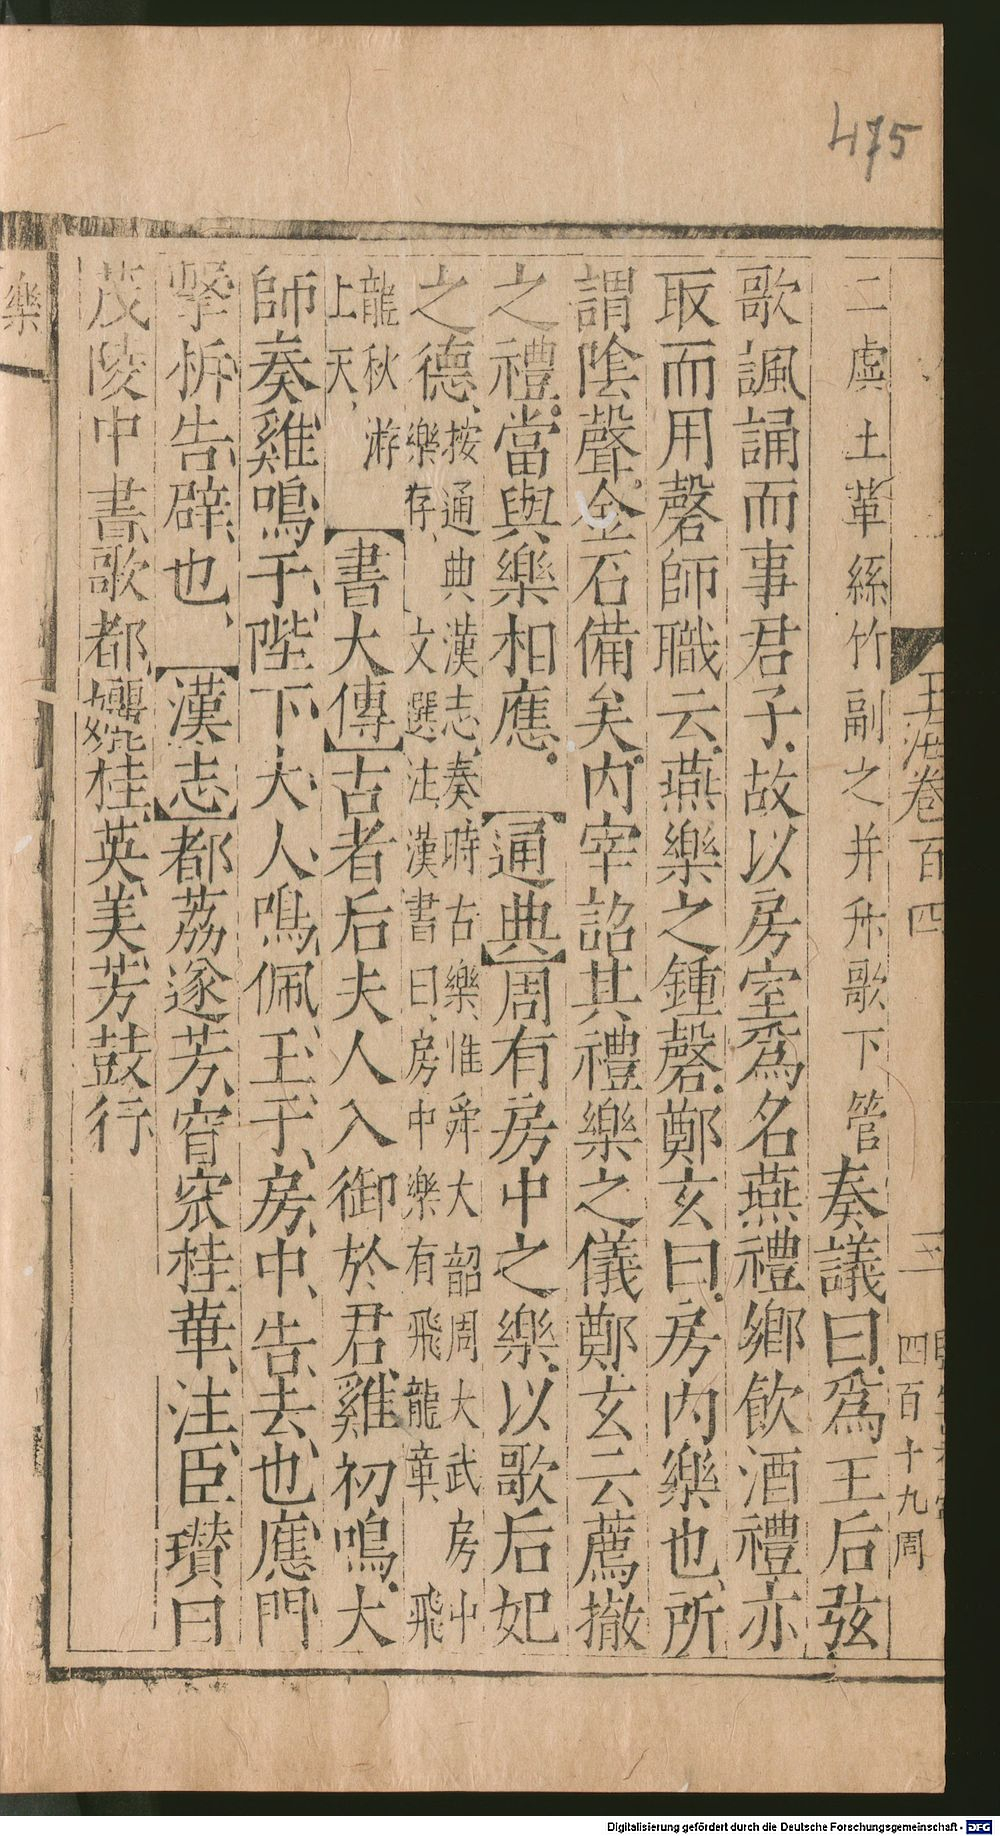 475
玉海卷百四
三
四百十九周
二虡土革絲竹副之并升歌下管奏議曰爲王后弦
歌諷誦而事君子故以房室爲名燕禮鄉飲酒禮亦
取而用磬師職云燕樂之鍾磬鄭玄曰房内樂也所
謂陰聲金石備矣内宰詔其禮樂之儀鄭玄云薦撤
之禮當與樂相應【通典】周有房中之樂以歌后妃
之德按通典漢志奏時古樂惟舜大韶周大武房中
樂存文選注漢書曰房中樂有飛龍章飛
龍秋游
上天【書大傳】古者后夫人入御於君雞初鳴大
師奏雞鳴于陛下大人鳴佩玉于房中告去也應門
擊柝告辟也【漢志】都荔遂芳窅窊桂華注臣瓚曰
茂陵中書歌都桂英美芳鼓行
樂
Digitalisierung gefördert durch die Deutsche Forschungsgemeinschaft - DFG